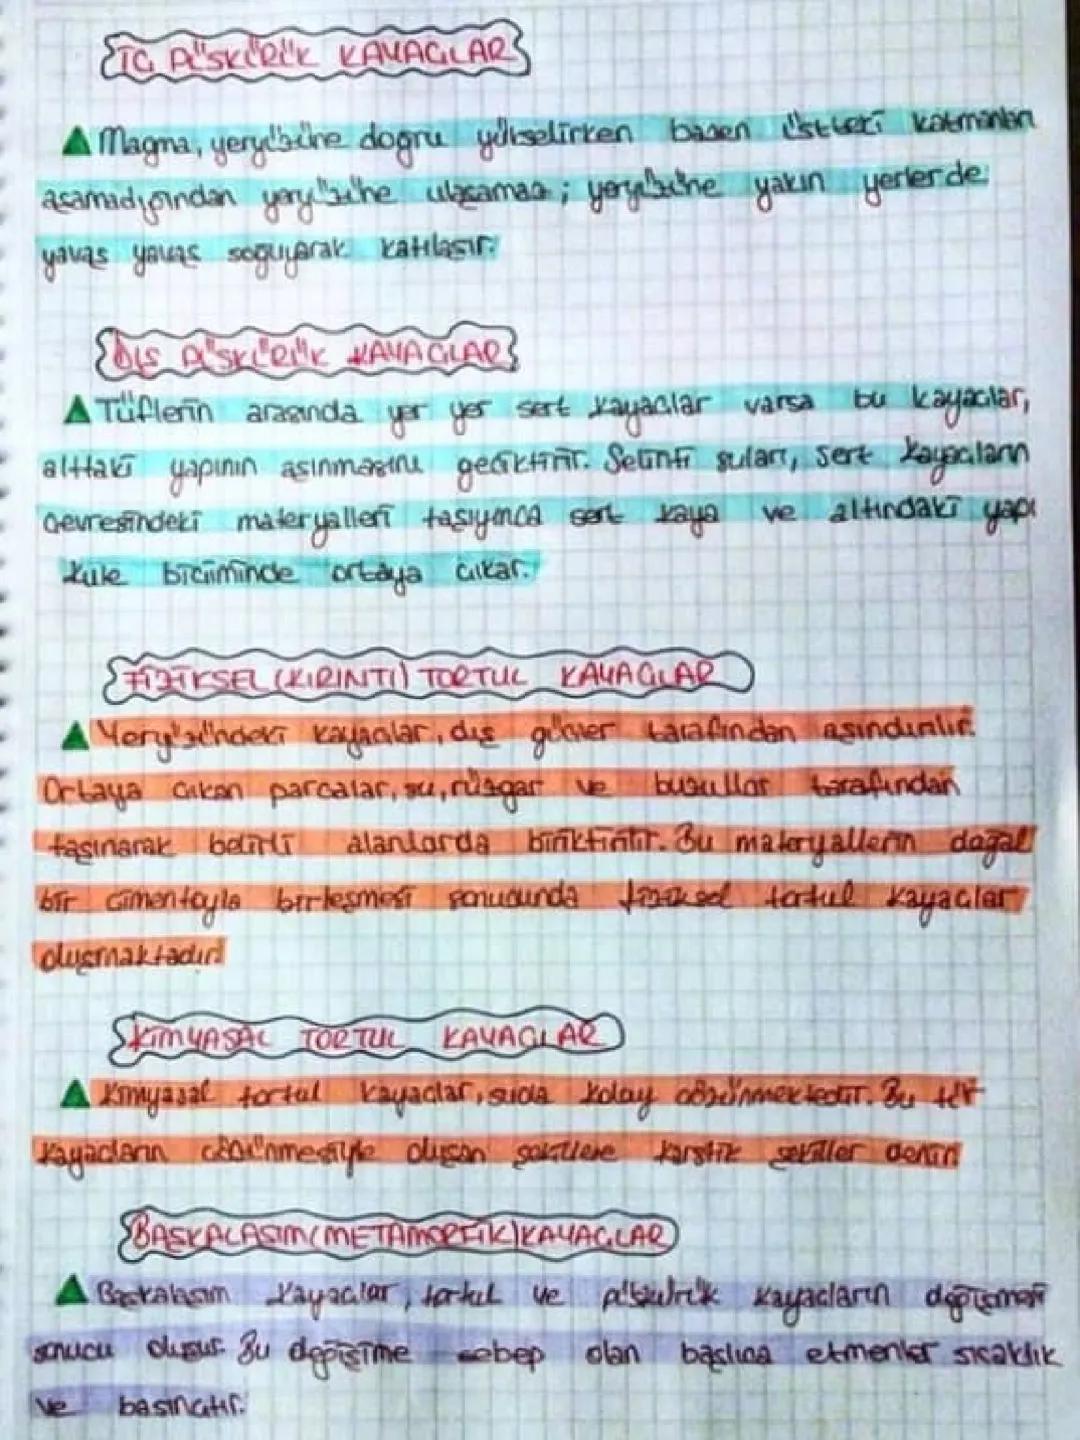 İÇ PÜSKÜRÜK KAYAÇLAR
Magma, yeryüzüne doğru yükselirken bazen üstteki katmanları
aşamadığından yeryüzüne ulaşamaz; yeryüzüne yakın yerlerde
yavaş yavaş soğuyarak katılaşır.
DIŞ PÜSKÜRÜK KAYAÇLAR
Tüflerin arasında yer yer sert kayaçlar varsa bu kayaçlar,
alttaki yapının aşınmasını geciktirir. Selinti suları, sert kayaçların
çevresindeki materyalleri taşıyınca sert kaya ve altındaki yapı
kule biçiminde ortaya çıkar.
FİZİKSEL (KIRINTI) TORTUL KAYAÇLAR
Yeryüzündeki kayaçlar, dış güçler tarafından aşındırılır.
Ortaya çıkan parçalar, su, rüzgar ve buzullar tarafından
taşınarak belirli alanlarda biriktirilir. Bu materyallerin doğal
bir çimentoyla birleşmesi sonucunda fiziksel tortul kayaçlar
oluşmaktadır.
KİMYASAL TORTUL KAYAÇLAR
Kimyasal tortul kayaçlar, suda kolay çözünmektedir. Bu tür
kayaçların çözünmesiyle oluşan şekillere karstik şekiller denir.
BAŞKALAŞIM (METAMORFİK) KAYAÇLAR
Başkalaşım kayaçlar, tortul ve püskürük kayaçların değişmesi
sonucu oluşur. Bu değişime sebep olan başlıca etmenler sıcaklık
ve basınçtır.